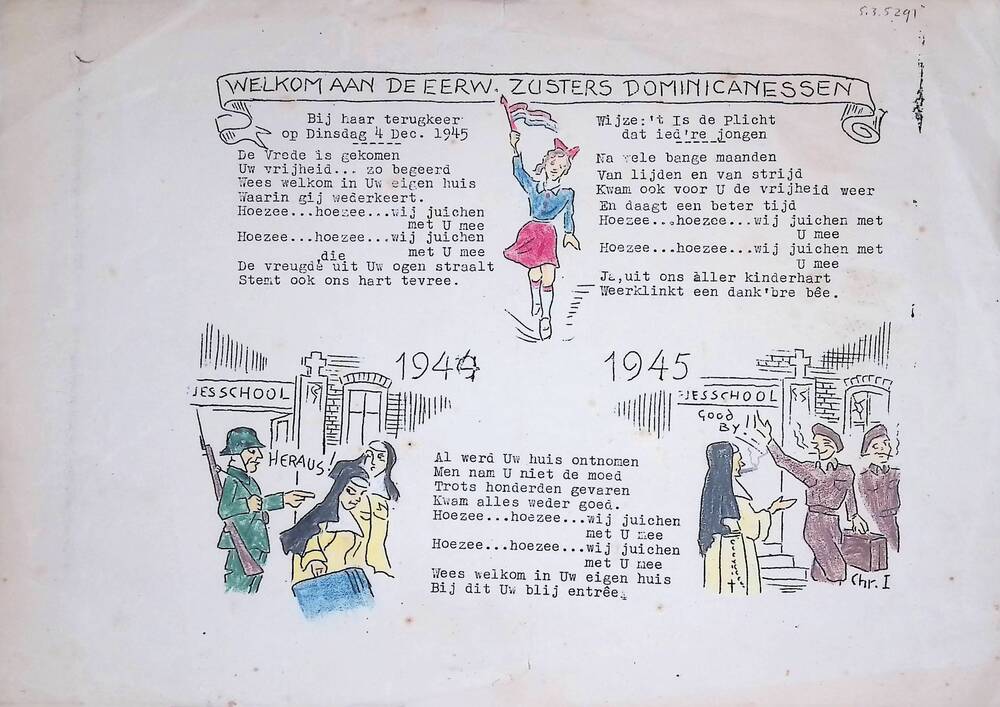 S.3.5291
WELKOM AAN DE EERW. ZUSTERS DOMINICANESSEN
Bij haar terugkeer
op Dinsdag 4 Dec. 1945
De Vrede is gekomen
Uw vrijheid... zo begeerd
Wees welkom in Uw eigen huis
Waarin gij wederkeert.
Hoezee...hoezee...wij juichen
met U mee
Hoezee...hoezee...wij juichen
met U mee
die
De vreugde uit Uw ogen straalt
Stemt ook ons hart tevree.
Wijze:'t Is de Plicht
dat ied're jongen
Na vele bange maanden
Van lijden en van strijd
Kwam ook voor U de vrijheid weer
En daagt een beter tijd
Hoezee...hoezee...wij juichen met
U mee
Hoezee...hoezee...wij juichen met
U mee
Ja,uit ons àller kinderhart
Weerklinkt een dank'bre bêe.
1944
JESSCHOOL
HERAUS!
1945
JESSCHOOL
GOOD
BY!
Al werd Uw huis ontnomen
Men nam U niet de moed
Trots honderden gevaren
Kwam alles weder goed.
Hoezee...hoezee...wij juichen
met U mee
Hoezee...hoezee...wij juichen
met U mee
Wees welkom in Uw eigen huis
Bij dit Uw blij entrêe.
Chr. I